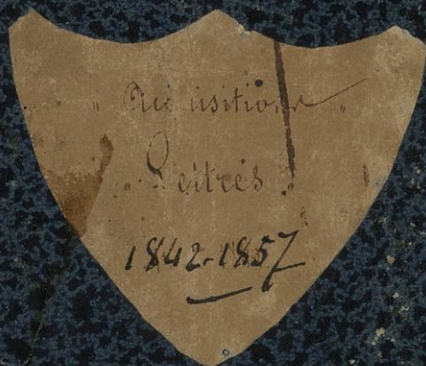 "Acquisitions"
"Lettres"
1842-1857